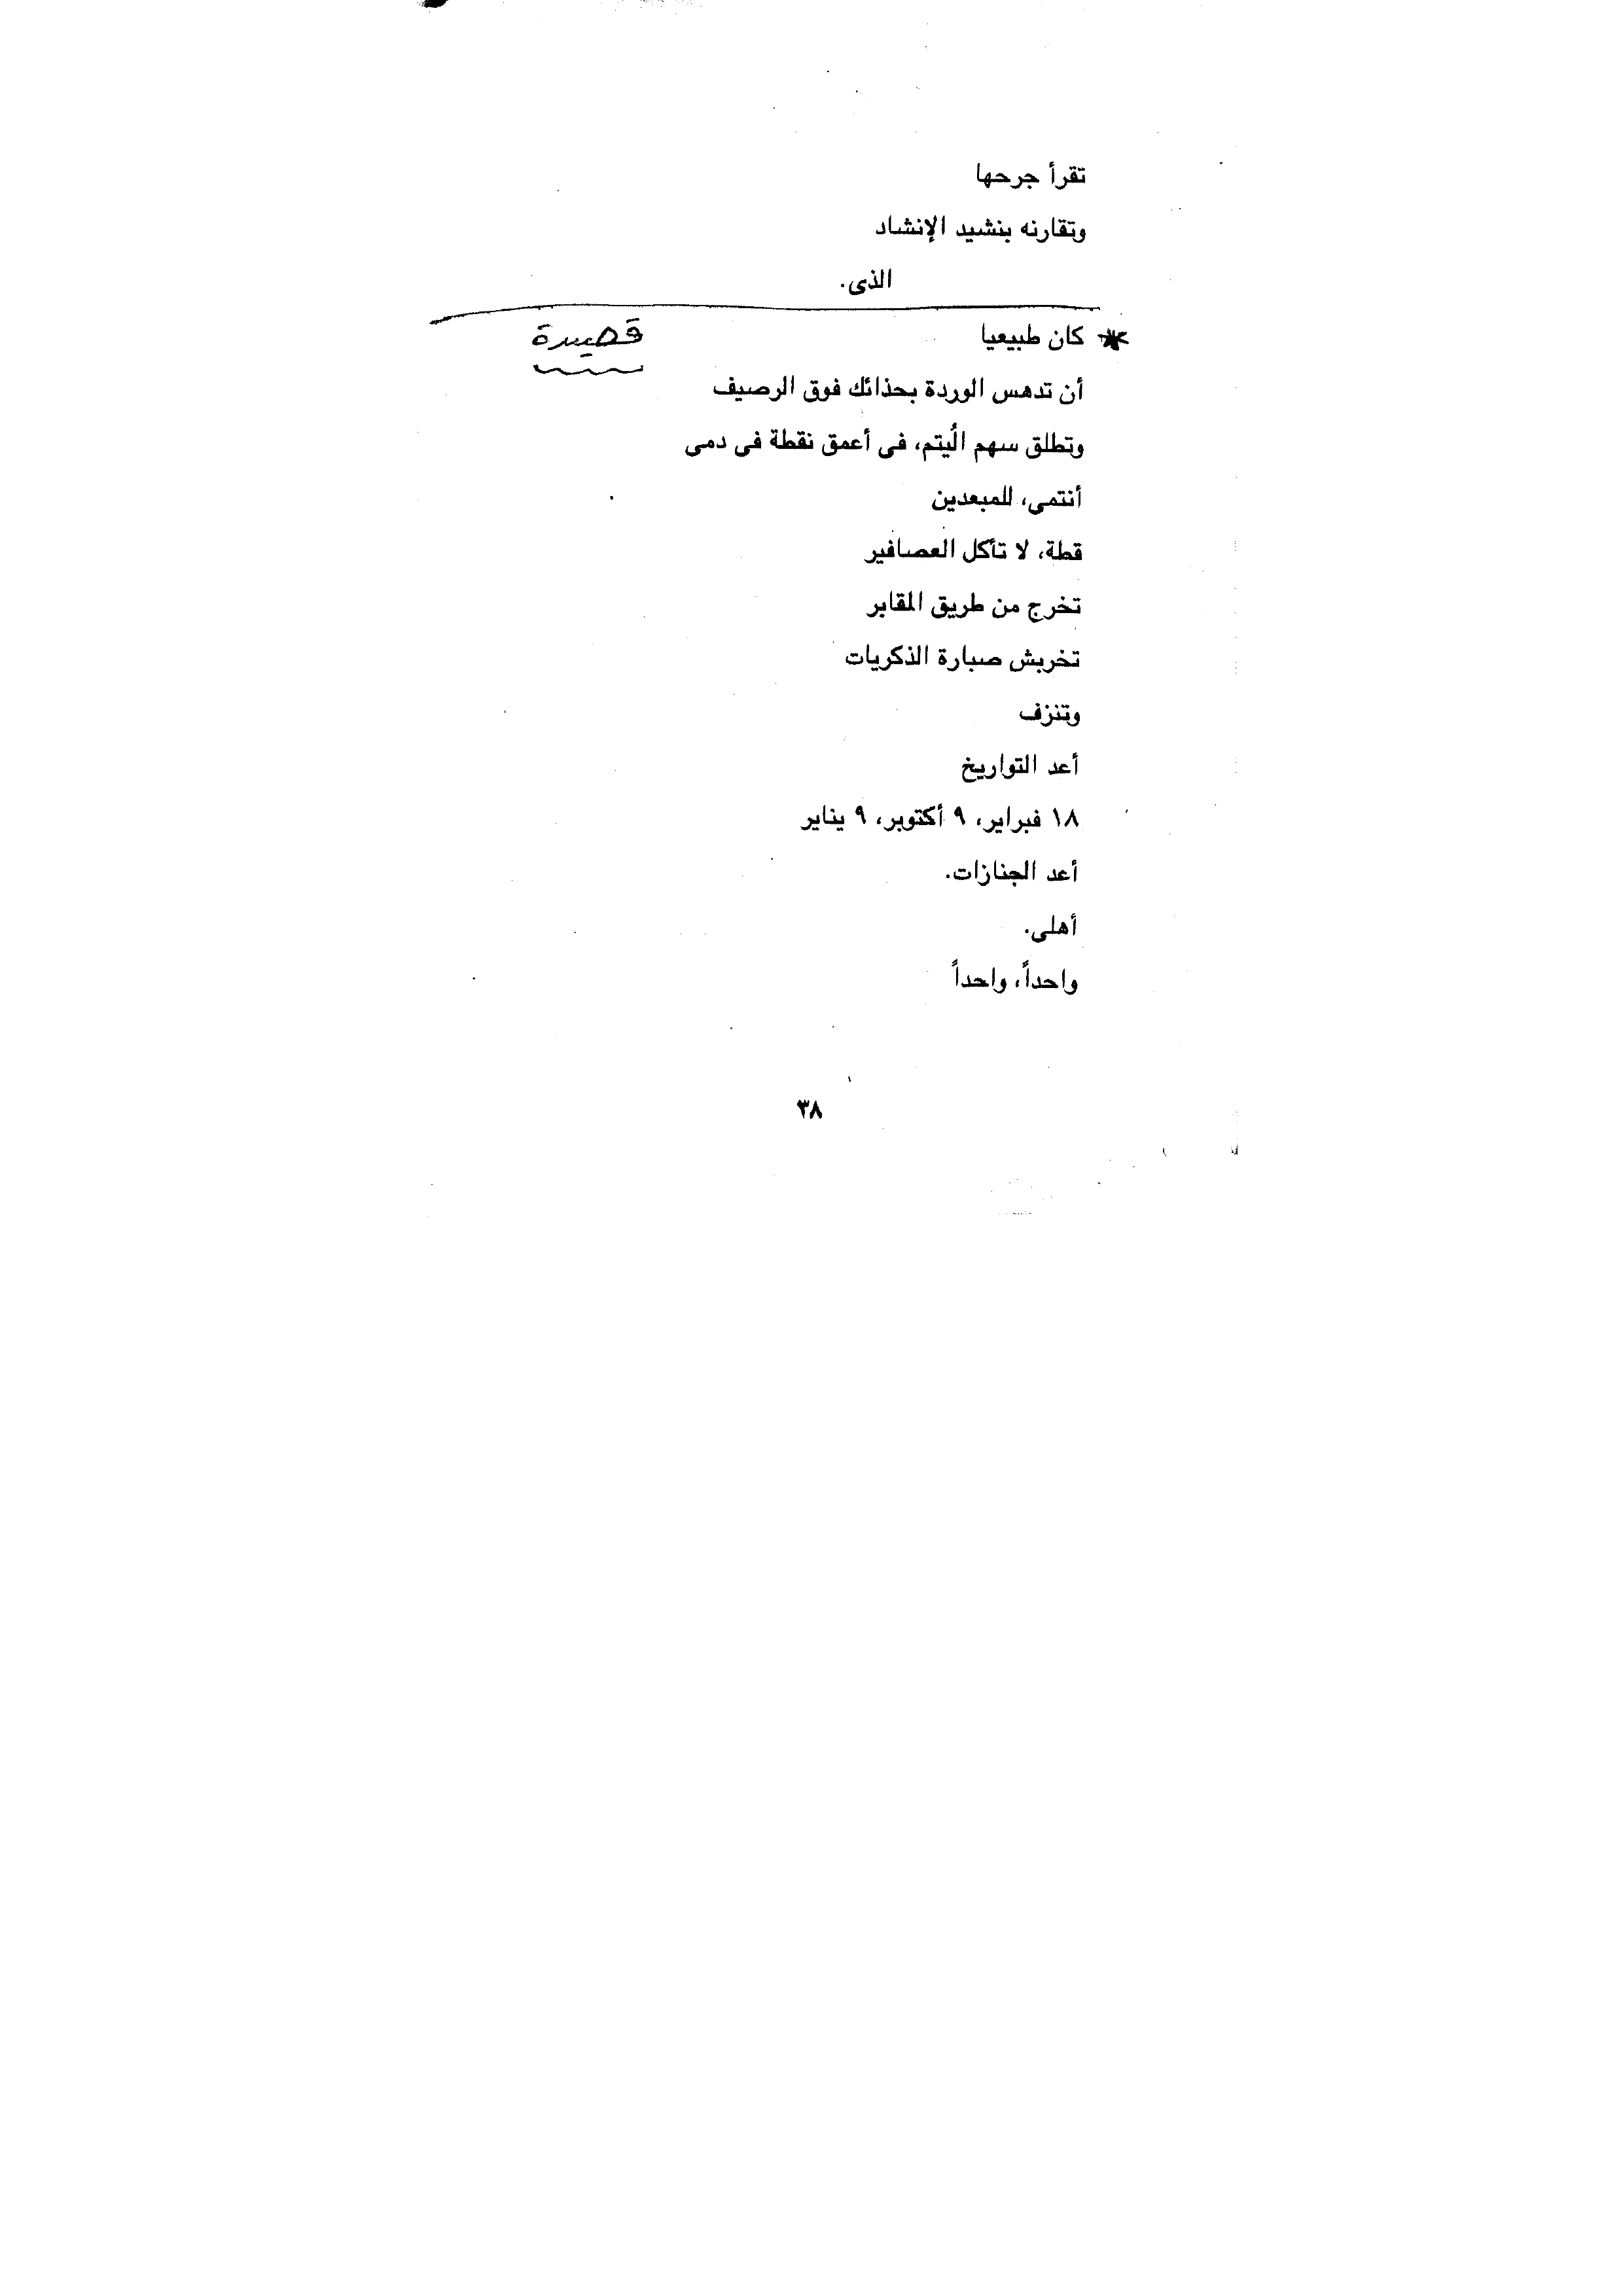 تقرأ جرحها
وتقارنه بنشيد الإنشاد
الذى.
* كان طبيعيا
قصيدة
أن تدهس الوردة بحذائك فوق الرصيف
وتطلق سهم الُيتم، فى أعمق نقطة فى دمى
أنتمى، للمبعدين
قطة، لا تأكل العصافير
تخرج من طريق المقابر
تخربش صبارة الذكريات
وتنزف
أعد التواريخ
١٨ فبراير، ٩ أكتوبر، ٩ يناير
أعد الجنازات.
أهلى.
واحداً، واحداً
٣٨